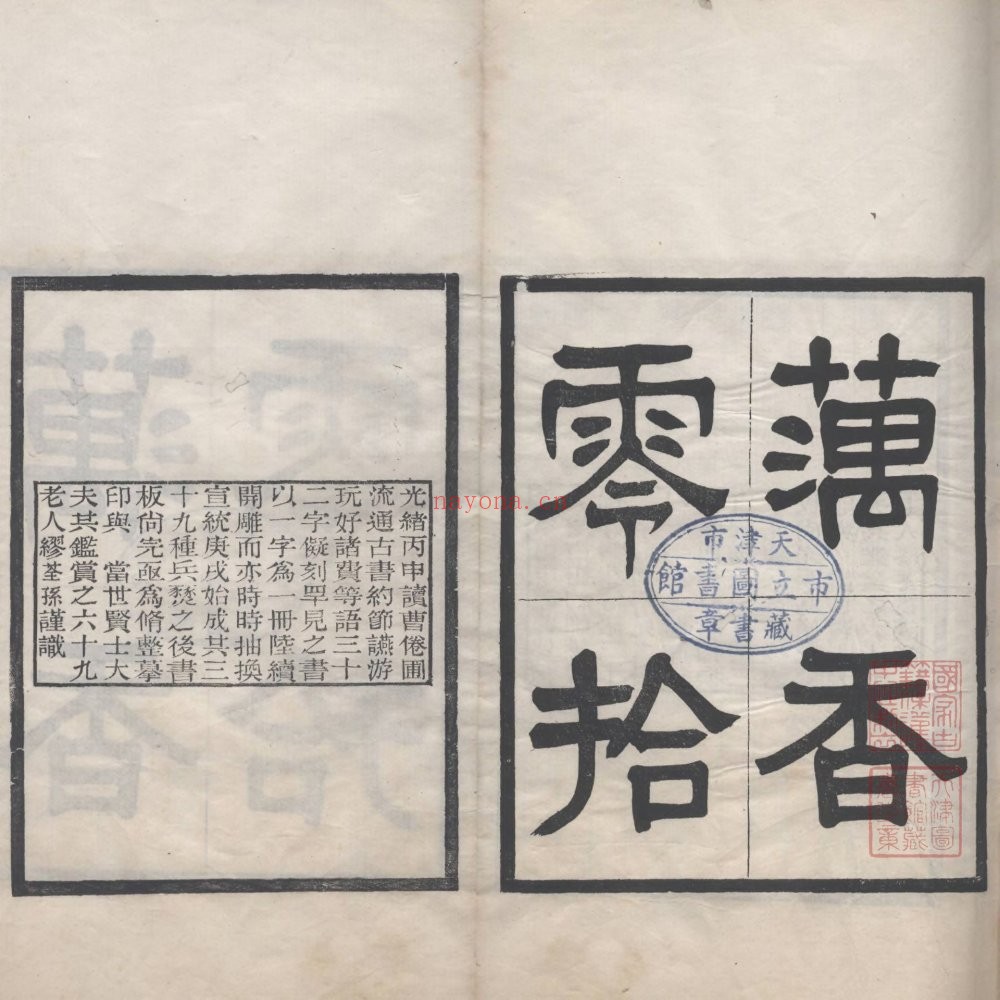 藕香
零拾
天津市
市立圖書館
藏書章
光緒丙申讀曹倦圃
流通古書約節讌游
玩好諸費等語三十
二字儗刻罕見之書
以一字為一冊陸續
開雕而亦時時抽換
宣統庚戌始成其三
十九種兵燹之後書
板尚完亟為脩整摹
印與　當世賢士大
夫其鑑賞之六十九
老人繆荃孫謹識
nayona.cn